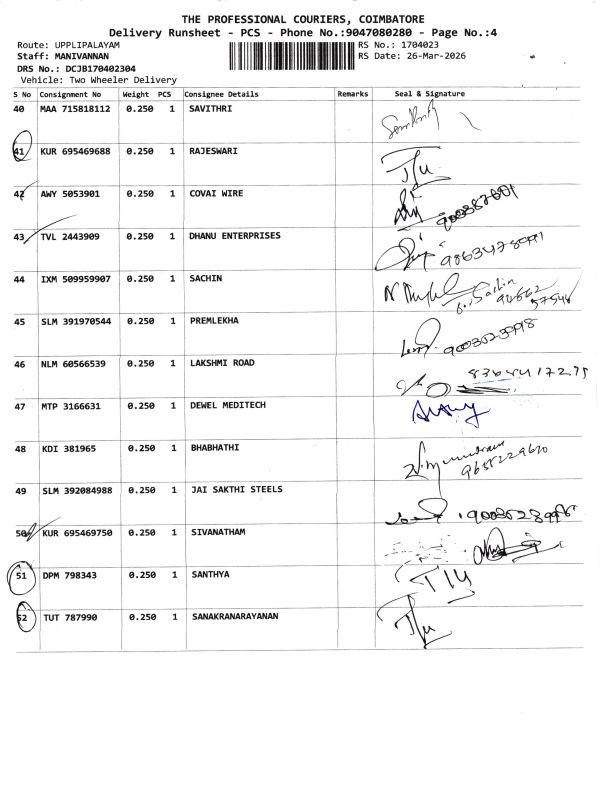 THE PROFESSIONAL COURIERS, COIMBATORE
Delivery Runsheet - PCS - Phone No.:9047080280 - Page No.:4
Route: UPPLIPALAYAM RS No.: 1704023
Staff: MANIVANNAN RS Date: 26-Mar-2026
DRS No.: DCJB170402304
Vehicle: Two Wheeler Delivery
S No Consignment No Weight PCS Consignee Details Remarks Seal & Signature
40 MAA 715818112 0.250 1 SAVITHRI
41 KUR 695469688 0.250 1 RAJESWARI
42 AWY 5053901 0.250 1 COVAI WIRE
43 TVL 2443909 0.250 1 DHANU ENTERPRISES
44 IXM 509959907 0.250 1 SACHIN Sachin
45 SLM 391970544 0.250 1 PREMLEKHA
46 NLM 60566539 0.250 1 LAKSHMI ROAD
47 MTP 3166631 0.250 1 DEWEL MEDITECH
48 KDI 381965 0.250 1 BHABHATHI
49 SLM 392084988 0.250 1 JAI SAKTHI STEELS
50 KUR 695469750 0.250 1 SIVANATHAM
51 DPM 798343 0.250 1 SANTHYA
52 TUT 787990 0.250 1 SANAKRANARAYANAN